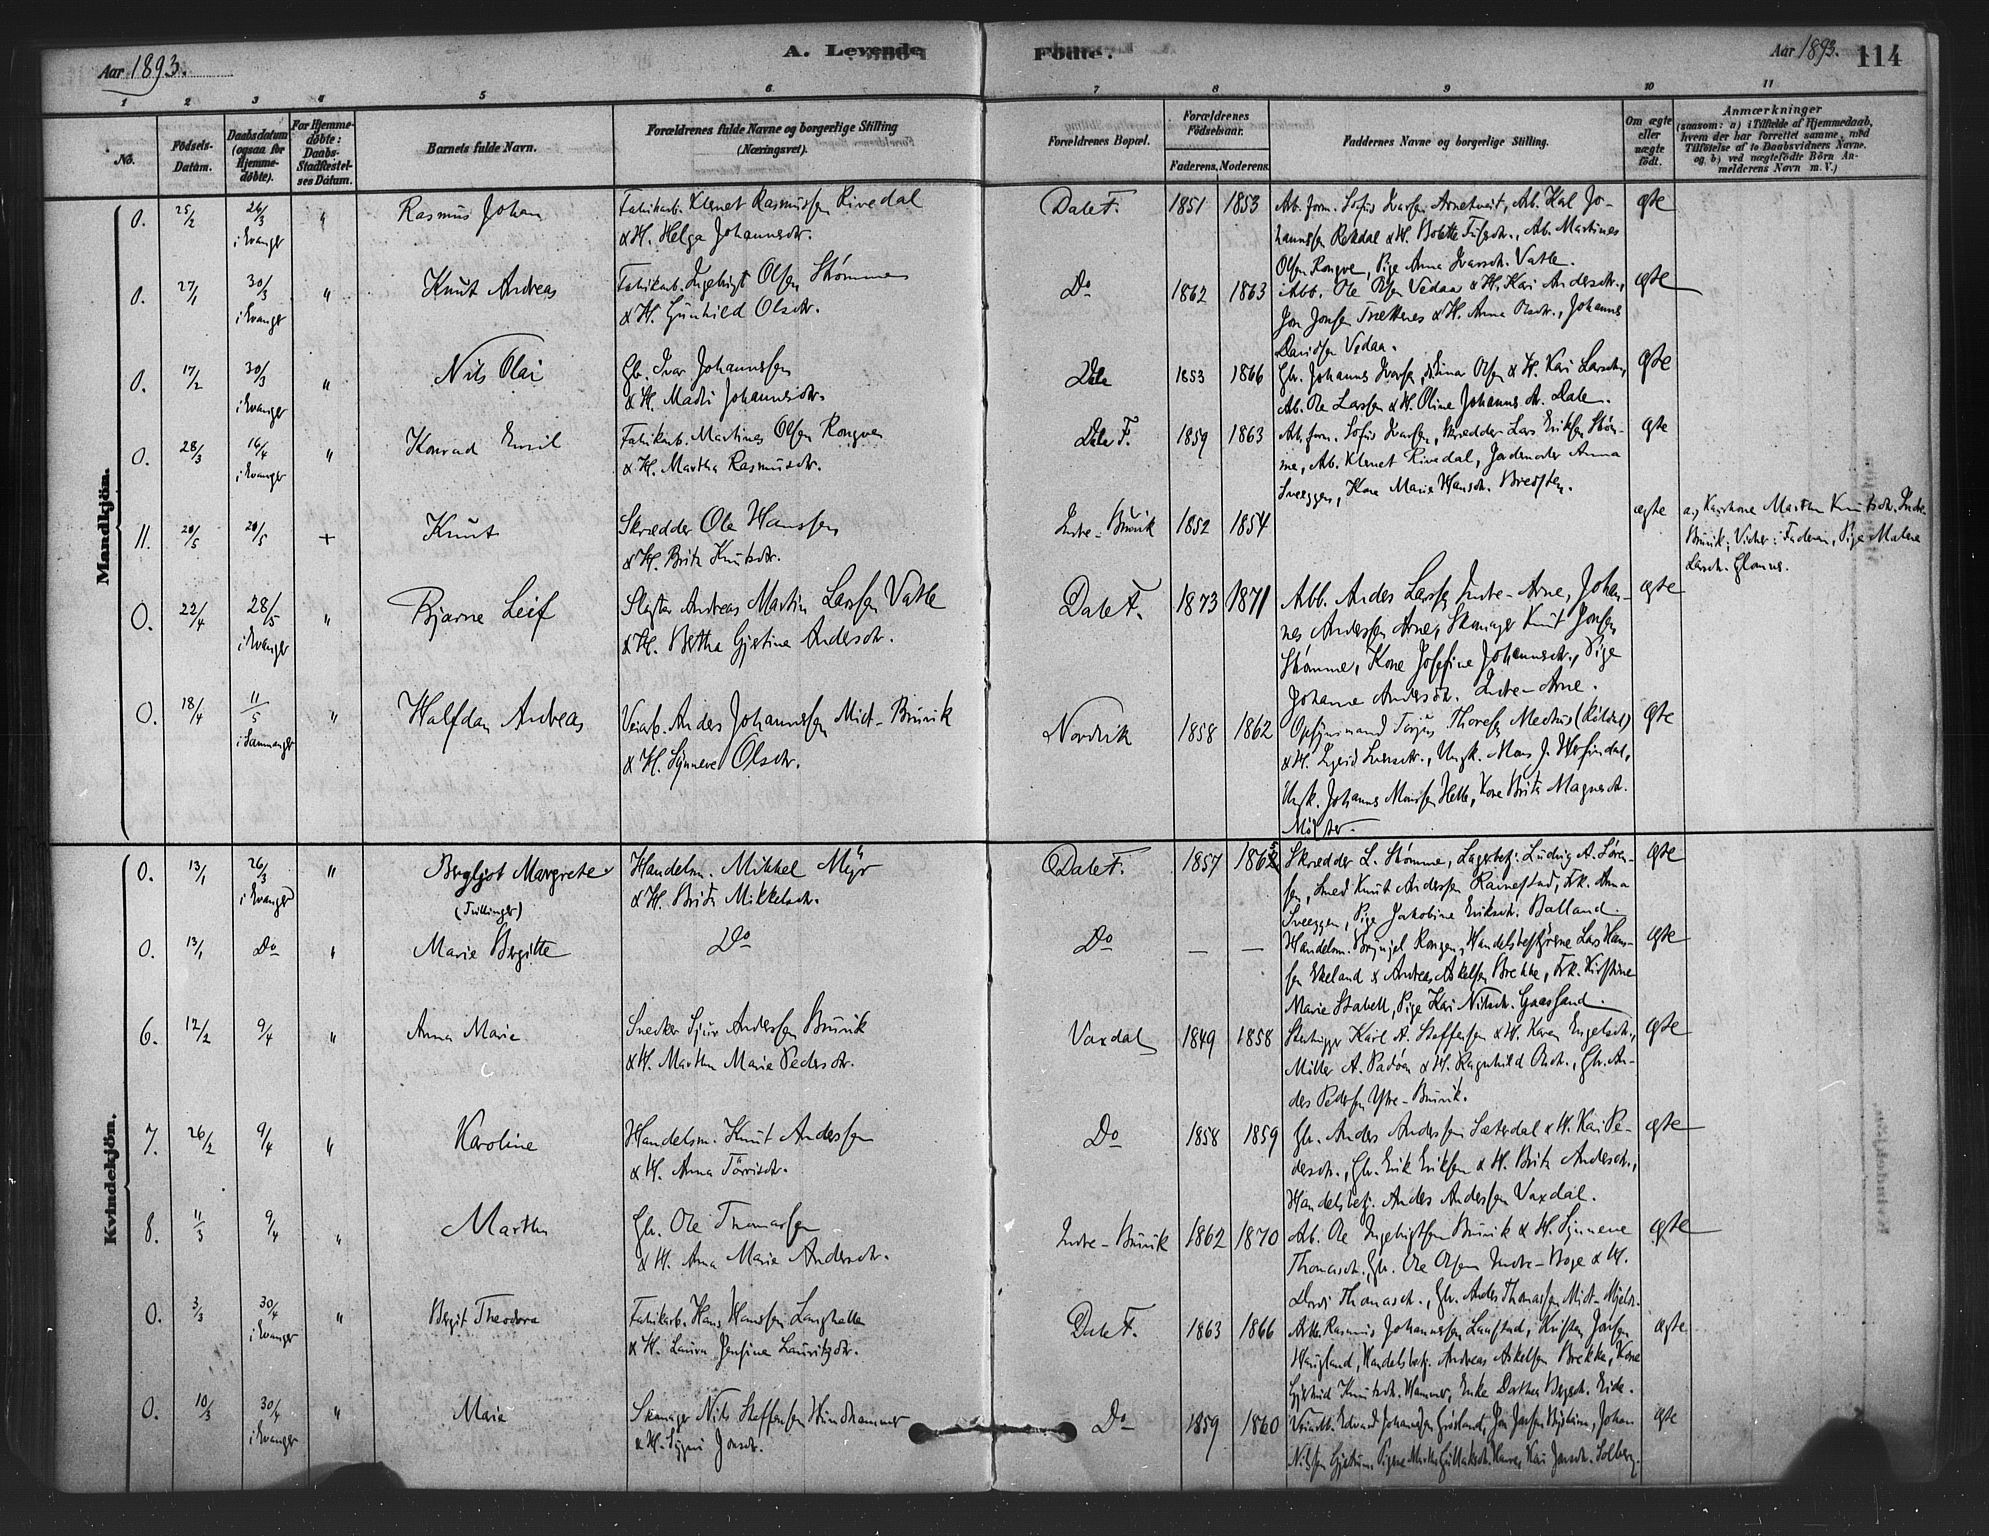 Aar 1893.
A. Levende Fødte.
Aar 1893. 114
1 2 3 4 5 6 7 8 9 10 11
No.
Fødsels-Datum.
Daabsdatum (ogsaa for Hjemme-døbte).
For Hjemme-døbte: Daabs-Stadfæstel-ses Datum.
Barnets fulde Navn.
Forældrenes fulde Navne og borgerlige Stilling (Næringsvei).
Forældrenes Bopæl.
Forældrenes Fødselsaar.
Faderens. Moderens.
Faddernes Navne og borgerlige Stilling.
Om ægte eller uægte født.
Anmærkninger
(saasom: a) i Tilfælde af Hjemmedaab, hvem der har forrettet samme, med Tilføielse af to Daabsvidners Navne, og b) ved uægtefødte Børn An-melderens Navn m. V.)
Mandkjön.
0. 25/2 26/3 i Evanger " Rasmus Johan
Fabrikarb. Klemet Rasmussen Rivedal
& H. Helga Johannesdtr.
Dale F. 1851 1853
Arb. form. Sofus Ivarsen Arnetveit, Arb. Karl Jo-
hannessen Rekdal & H. Bolette, Arb. Martines
Olsen Rongve, Pige Anna Ivarsdtr. Vatle.
ægte
0. 27/1 30/3 i Evanger " Knut Andreas
Fabrikarb. Ingebrigt Olsen Stømme
& H. Gunhild Olsdtr.
Do 1862 1863
Arbb. Ole Olsen Vedaa & H. Kari Andersdtr.,
Jon Jonsen Trættenes & H. Anna Olsdtr., Johannes
Davidsen Vedaa.
ægte
0. 17/2 30/3 i Evanger " Nils Olai
Gbr. Ivar Johannessen
& H. Madli Johannesdtr.
Dale 1853 1866
Gbr. Johannes Ivarsen, Olsen & H. Kari Larsdtr.,
Arb. Ole Larssen & H. Oline Johannesdtr. Dale.
ægte
0. 28/3 16/4 i Evanger " Konrad Emil
Fabrikarb. Martines Olsen Rongve
& H. Martha Rasmusdtr.
Dale F. 1859 1863
Arb. form. Sofus Ivarsen, Skrædder Lars Eriksen Støm-
me, Arb. Klemet Rivedal, Jordemoder Anna
Sveeggen, Kone Marie Hansdtr. Bredsten.
ægte
11. 20/5 20/5 + Knut
Skrædder Ole Hanssen
& H. Brita Knutsdtr.
Indre-Bruvik 1852 1854
ægte
a, Kaarkone Martha Knutsdtr. Indre-
Bruvik; Vidner: Faderen, Pige Malene
Larsdtr.
0. 22/4 28/5 i Evanger " Bjarne Leif
Slagter Andreas Martin Larssen Vatle
& H. Bertha Gjertine Andersdtr.
Dale F. 1873 1871
Arbb. Anders Larssen Indre-Arne, Johan-
nes Anderssen Arne, Skomager Knut Jonsen
Stømme, Kone Josefine Johannesdtr., Pige
Johanne Andersdtr. Indre-Arne.
ægte
0. 18/4 11/5 i Samnanger " Halfdan Andreas
Veiarb. Anders Johannessen Midt-Bruvik
& H. Synneve Olsdtr.
Nordvik 1858 1862
Opsynsmand Thoresen Medhus
& H. Ingrid, Ungk. Mons J. Herfindal,
Ungk. Johannes Monssen Helle, Kone Brita Magnesdtr.
Møster.
ægte
Kvindekjön.
0. 13/1 26/3 i Evanger " Bergljot Margrete
(Tvillinger)
Handelsm. Mikkel Myr
& H. Brita Mikkelsdtr.
Dale F. 1857 1865
Skrædder L. Stømme, Lagerbetj. Ludvig A. Søren-
sen, Smed Knut Andersen Raunestad, Frk. Anna
Sveeggen, Pige Jakobine Eriksdtr. Balland.
ægte
0. 13/1 Do " Marie Bergitte
Do
Do — —
Handelsm. Brynjel Rongen, Handelsbestyrerne Lars Hans-
sen Ekeland & Andreas Askelsen Brekke, Frk. Kirstine
Marie Stabell, Pige Kari Nilsdtr. Gaassand.
ægte
6. 12/2 9/4 " Anna Marie
Snedker Sjur Anderssen Bruvik
& H. Martha Marie Pedersdtr.
Vaxdal 1849 1858
Stenhugger Karl A. Steffensen & H. Karen Engelsdtr.,
Møller A. Padøen & H. Ragnhild Olsdtr., Gbr. An-
ders Pedersen Ytre-Bruvik.
ægte
7. 26/2 9/4 " Karoline
Handelsm. Knut Anderssen
& H. Anna
Do 1858 1859
Gbr. Anders Anderssen Sæterdal & H. Kari Pe-
dersdtr., Gbr. Erik Eriksen & H. Brita Andersdtr.,
Handelsbetj. Anders Anderssen Vaxdal.
ægte
8. 11/3 9/4 " Martha
Gbr. Ole Thomassen
& H. Anna Marie Andersdtr.
Indre-Bruvik 1862 1870
Arb. Ole Ingebrigtsen Bruvik & H. Synneve
Thomasdtr., Gbr. Ole Olsen Indre-Boge & H.
Dordi Thomasdtr., Gbr. Anders Thomassen Midt-Mjelde.
ægte
0. 3/3 30/4 i Evanger " Bergit Theodora
Fabrikarb. Hans Hanssen Langhelle
& H. Laura Jensine Lauritzdtr.
Dale F. 1863 1866
Arbb. Rasmus Johannessen Laustad, Kristen Jonsen
Haugland, Handelsbetj. Andreas Askelsen Brekke, Kone
Gjertrud Knutsdtr. Hammer, Enke Dorthea Bergsdtr. Eide.
ægte
0. 10/3 30/4 i Evanger " Marie
Skomager Nils Steffensen Hundhammer
& H. Sygni Jonsdtr.
Do 1859 1860
Edvard Johannessen, Jon Jonsen, Johan
Nilssen, Pigerne Martha, Kari Jonsdtr. Solberg.
ægte